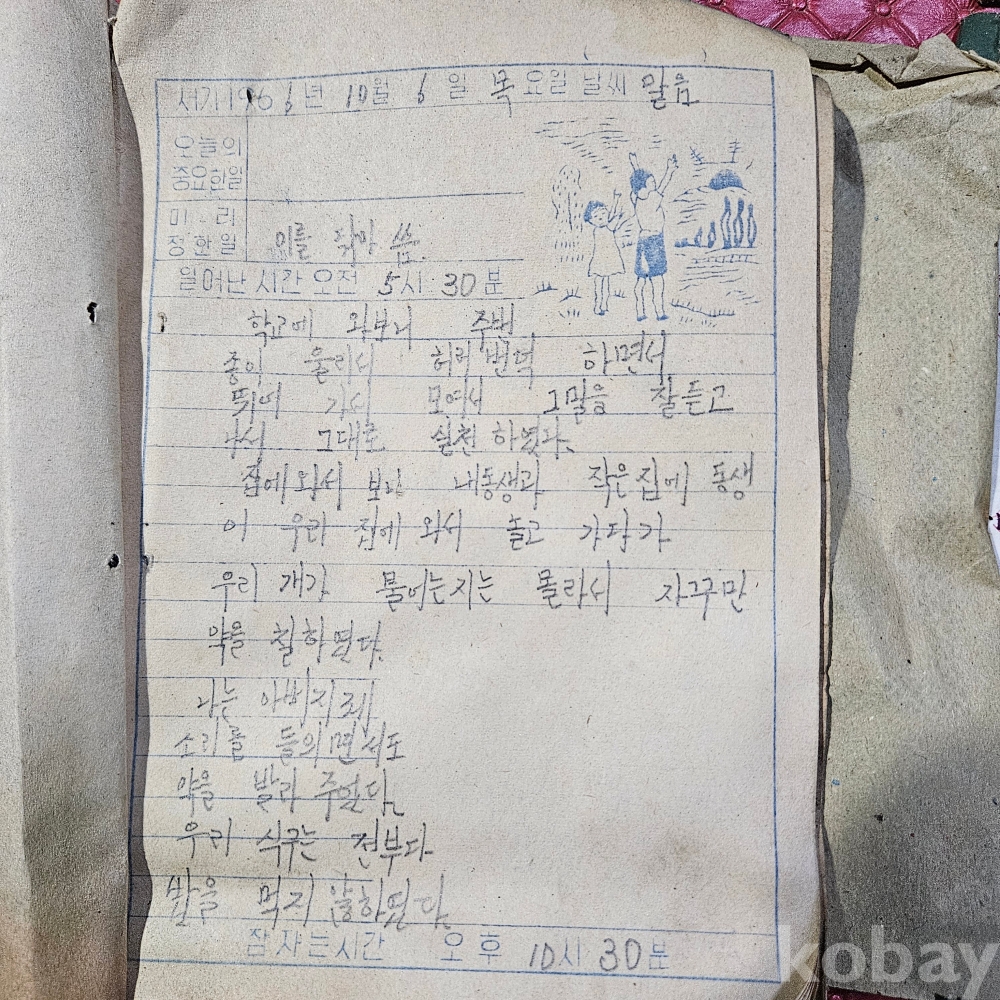 서기 1966년 10월 6일 목요일 날씨 맑음
오늘의
중요한일
미·리
정한일
이를 닦아 씀.
일어난 시간 오전 5시 30분
학교에 와보니 주번
종이 울리서 허러번덕 하면서
뛰여 가서 모여서 그말을 잘듣고
나서 그대로 실천 하였다.
집에 와서 보니 내동생과 작은집에 동생
이 우리 집에 와서 놀고 가다가
우리 개가 물어는지는 몰라서 자꾸만
약을 칠하였다.
나는 아버지께
소리를 들의면서도
약을 발라 주었다.
우리 식구는 전부다
밥을 먹지 않하였다.
잠자는시간 오후 10시 30분
kobay